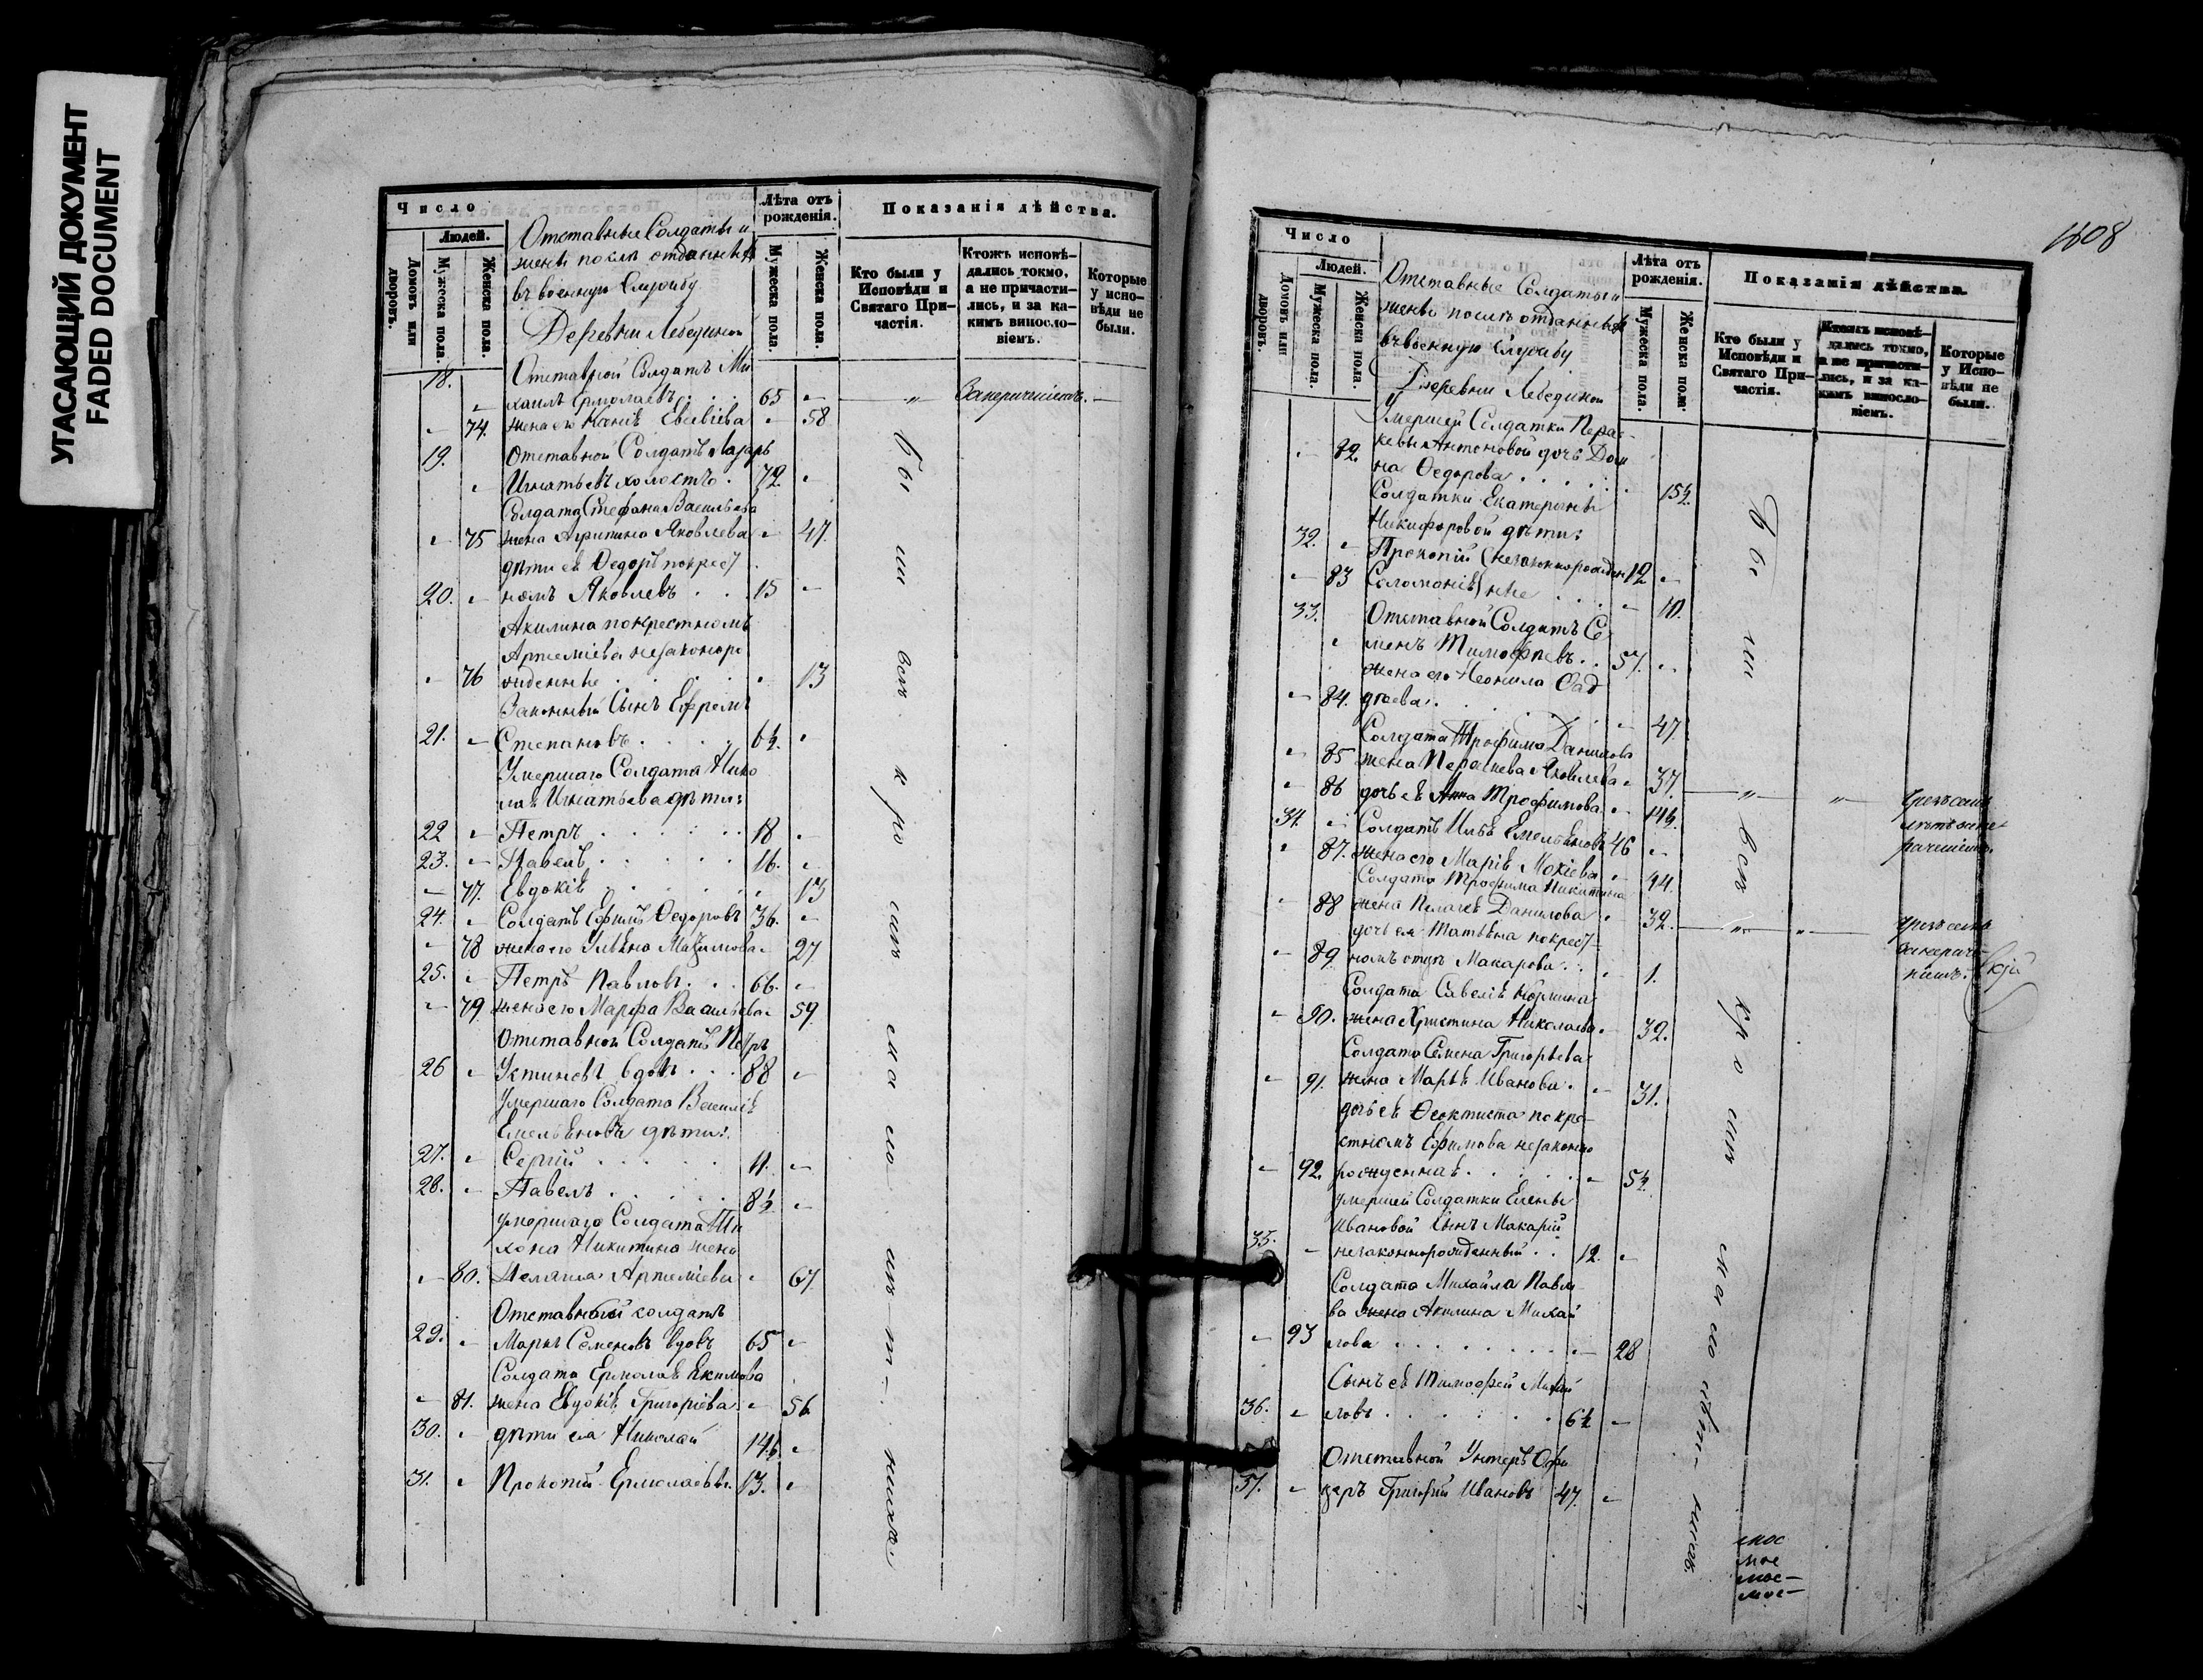 УГАСАЮЩИЙ ДОКУМЕНТ
FADED DOCUMENT
Число
Людей.
Домовъ или дворовъ.
Мужеска пола.
Женска пола.
Отставные Солдаты и
жены после отданныхъ
въ военную Службу
Деревни Лебединой
Лѣта отъ рожденія.
Мужеска пола.
Женска пола.
Показанія дѣйства.
Кто были у Исповѣди и Святаго При-
частія.
Ктожъ исповѣ-
дались токмо,
а не причасти-
лись, и за ка-
кимъ винosло-
віемъ.
Которые
у испо-
вѣди не
были.
18. Отставной Солдатъ Ми
хаилъ Ермолаевъ . . . 65
74. жена его Ксенія 58
19. Отставной Солдатъ Лазарь
Игнатьевъ холостъ . 72.
Солдата Стефана Васильева
75 жена Агрипина Яковлева 47.
дѣти ея Ѳедоръ по крест
20. номъ Яковлевъ . . . 15
Акилина по крестномъ
Артеміева незаконоро
76 жденные . . . . 13
Законный Сынъ Ефремъ
21. Степановъ . . . . 6½.
Умершаго Солдата Нико
лая Игнатьева дѣти:
22 Петръ . . . . . . 18
23. Павелъ . . . . . 16.
77. Евдокія . . . . . 13
24. Солдатъ Ефимъ Ѳедоровъ 36.
78 жена его Ульяна Максимова 27
25. Петръ Павловъ . . . 66.
79. жена его Марфа Васильева 59
Отставной Солдатъ Петръ
26 Устиновъ вдовъ . . . 88
Умершаго Солдата Василія
Емельянова дѣти:
27. Сергій . . . . . 11.
28. Павелъ . . . . . 8½
умершаго Солдата Ти
хона Никитина жена
80. Пелагія Артеміева 67
Отставной солдатъ
29. Маркъ Семеновъ вдовъ 65
Солдата Ермолая Екимова
81. жена Евдокія Григоріева 56
30. дѣти ея Николай 14½
31. Прокопій Ермолаевы. 13.
1608
Число
Людей.
Домовъ или дворовъ.
Мужеска пола.
Женска пола.
Отставные Солдаты и
жены после отданныхъ
въ военную Службу
Деревни Лебединой
Лѣта отъ рожденія.
Мужеска пола.
Женска пола.
Показанія дѣйства.
Кто были у
Исповѣди и
Святаго При-
частія.
Ктожъ исповѣ-
дались токмо,
а не причасти-
лись, и за ка-
кимъ виносло-
віемъ.
Которые
у Испо-
вѣди не
были.
Умершей Солдатки Парас-
кевы Антоновой дочь Дом
82. на Ѳедорова . . . . . 15½.
Солдатки Екатерины
Никифоровой дѣти:
32. Прокопій (незаконнорожден 12
83 Соломонія) ные . . . 10.
33. Отставной Солдатъ Се
менъ Тимофѣевъ . . 57.
жена его Неонила Фад
84. дѣева . . . . . . 47
Солдата Трофима Данилова
85 жена Параскева Яковлева 37.
86 дочь ея Анна Трофимова 14½.
34. Солдатъ Илья Емельяновъ 46
87. жена его Марія Мокіева 44.
Солдата Трофима Никитина
88 жена Пелагея Данилова 32.
дочь ея Татьяна по крест-
89. номъ отцѣ Макарова . . 1.
Солдата Савелія Кузмина
90. жена Христина Николаева 32.
Солдата Семена Григорьева
91. жена Марья Иванова . 31.
дочь ея Ѳеоктиста по кре-
стномъ Ефимова незаконно
92. рожденная . . . . . 5½
умершей Солдатки Елены
Ивановой Сынъ Макарій
35. незаконнорожденный . . 12.
Солдата Михайла Павло
ва жена Акилина Михай
93 лова . . . . . . . . 28
Сынъ ея Тимофей Михай
36. ловъ . . . . . . . 6½
Отставной Унтеръ Офи
37. церъ Григорій Ивановъ 47.